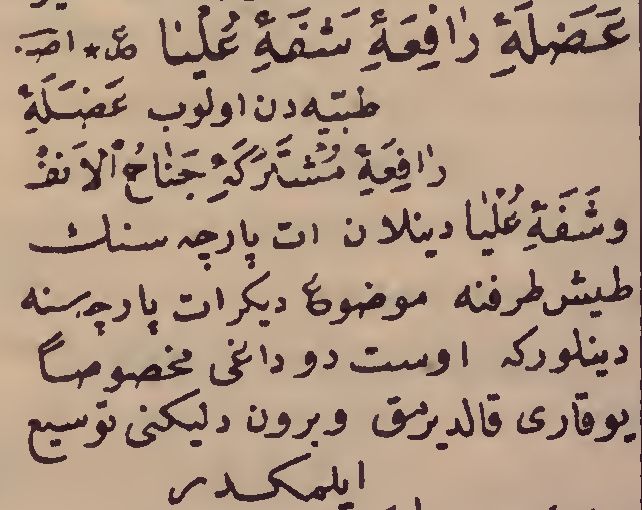 عَضَلَهِٔ رٰافِعَهِٔ شَفَهِٔ عُلْیٰا عل * اصـ
طبّیّه‌دن اولوب عَضَلَهِٔ
رٰافِعَهِٔ مُشْتَرَكَهِٔ جَنٰاحُ الْاَنفْ
وشَفَهِٔ عُلْیٰا دینلان ات پارچه سنك
طیش طرفنه موضوع دیكر ات پارچه‌سنه
دینلوركه اوست دوداغی مخصوصاً
یوقاری قالدیرمق وبرون دلیكنی توسیع
ایلمكدر